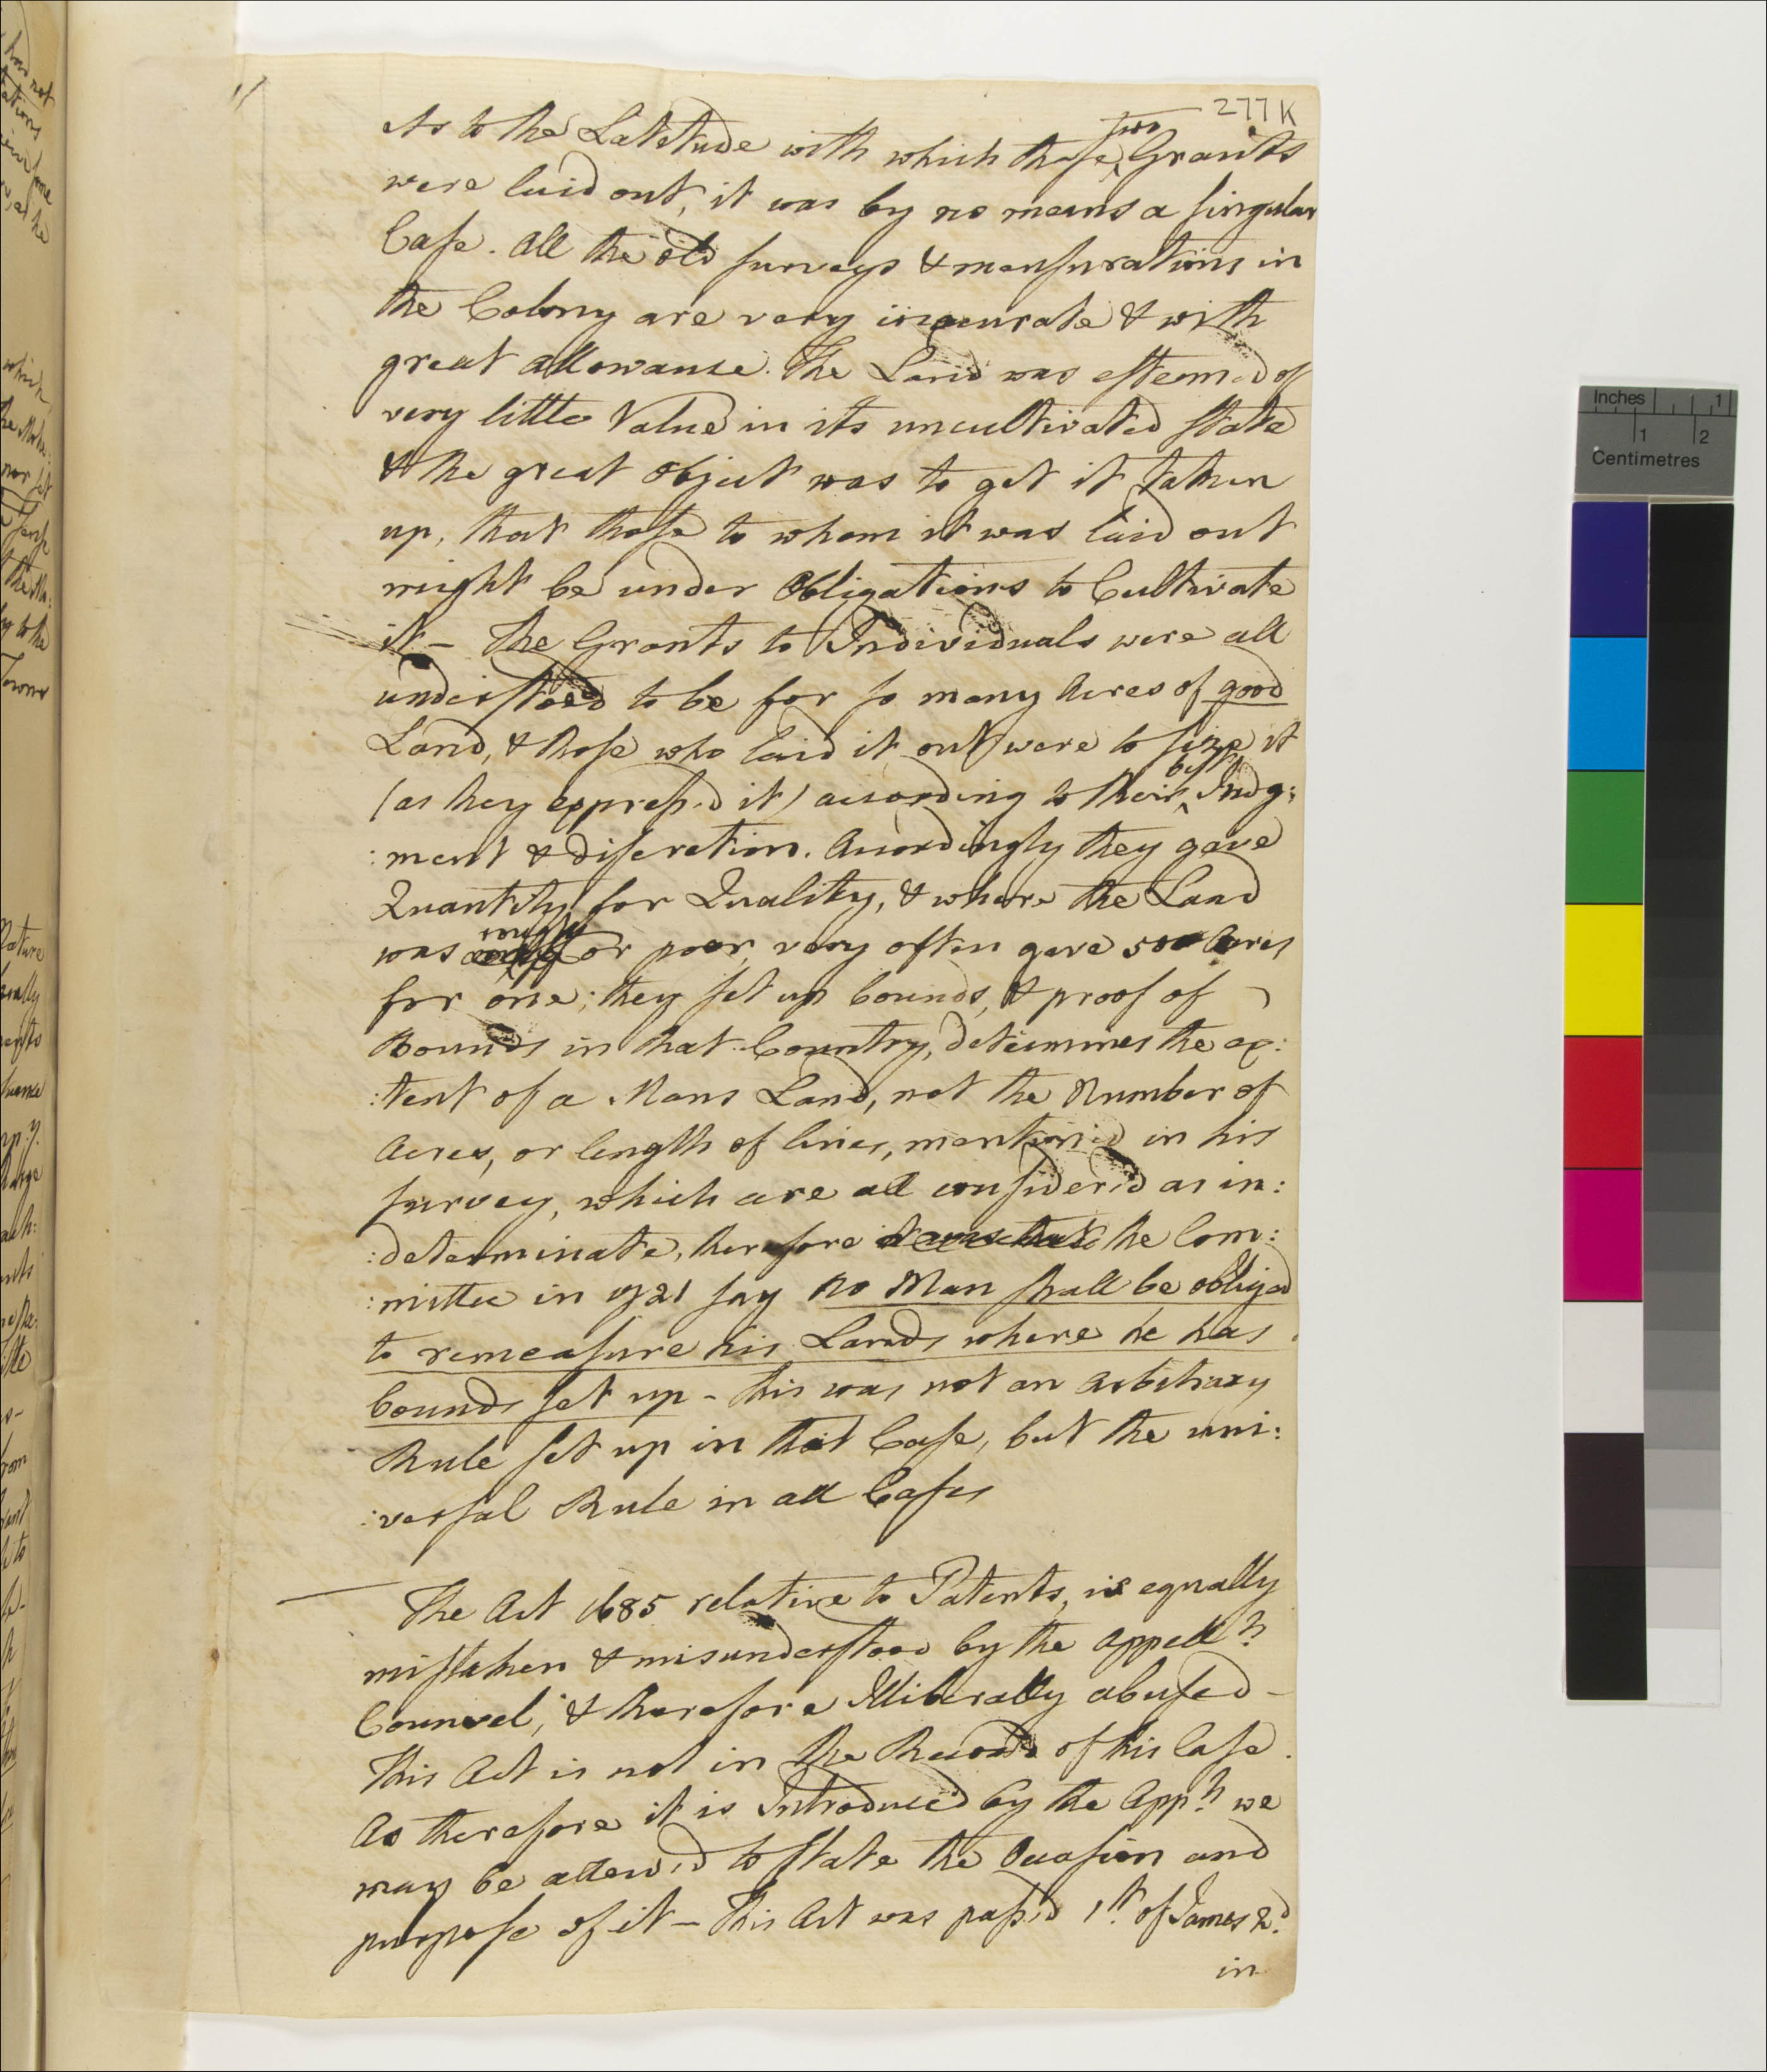 277K
As to the Latitude with which these two Grants
were laid out, it was by no means a singular
Case. All the old surveys & mensurations in
the Colony are very inaccurate & with
great allowance. The Land was esteemed of
very little Value in its uncultivated state
& the great Object was to get it taken
up, that those to whom it was laid out
might be under Obligations to Cultivate
it – The Grants to Individuals were all
understood to be for so many Acres of good
Land, & those who laid it out were to size it
(as they express'd it) according to their best Judg:
:ment & discretion. Accordingly they gave
Quantity for Quality, & where the Land
was rough or poor, very often gave 500 Acres
for one; they set up bounds, & proof of
Bounds in that Country, determines the ex:
:tent of a Mans Land, not the Number of
Acres, or length of lines, mention'd in his
survey, which are all consider'd as in:
:determinate, therefore the Com:
:mittee in 1721 say no Man shall be obliged
to remeasure his Lands where he has
bounds set up – this was not an arbitrary
Rule set up in that Case, but the uni:
:versal Rule in all Cases
The Act 1685 relative to Patents, is equally
mistaken & misunderstood by the Appell.ts
Counsel, & therefore Illiberally abused –
This Act is not in the Records of this Case.
As therefore it is Introduced by the App.ts we
may be allow'd to state the Occasion and
purpose of it – This Act was pass'd 1st of James 2d
in
Inches 1
1 2
Centimetres